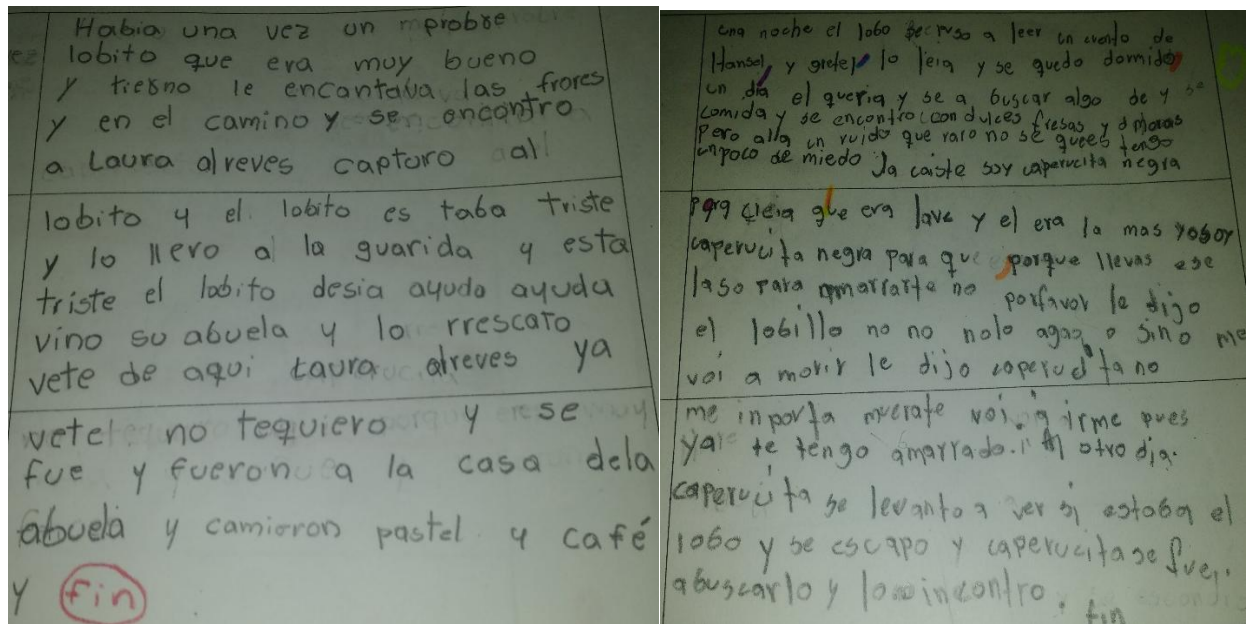 Habia una vez un mprobre
lobito que era muy bueno
y tierno le encantava las frores
y en el camino y se encontro
a Laura alreves capturo al
lobito y el lobito es taba triste
y lo llevo a la guarida y esta
triste el lobito desia ayudo ayuda
vino su abuela y lo rrescato
vete de aqui Laura alreves ya
vete! no tequiero y se
fue y fueron a la casa dela
abuela y camieron pastel y café
y fin
una noche el lobo se puso a leer un cuento de
Hansel y gretel lo leia y se quedo domido
un dia el queria y se a buscar algo de y se
comida y se encontro con dulces fresas y moras
Pero alla un ruido que raro no se quees tengo
un poco de miedo Ja caiste soy caperucita negra
que era lave y el era la mas yosoy
caperucita negra para que porque llevas ese
laso Para amarrarte no porfavor le dijo
el lobillo no no nolo agas o sino me
voi a morir le dijo caperucita no
me inporta muerate voi a irme pues
ya te tengo amarrado. Al otro dia.
caperucita se levanto a ver si estaba el
lobo y se escapo y caperucita se fue
abuscarlo y lo incontro.
fin